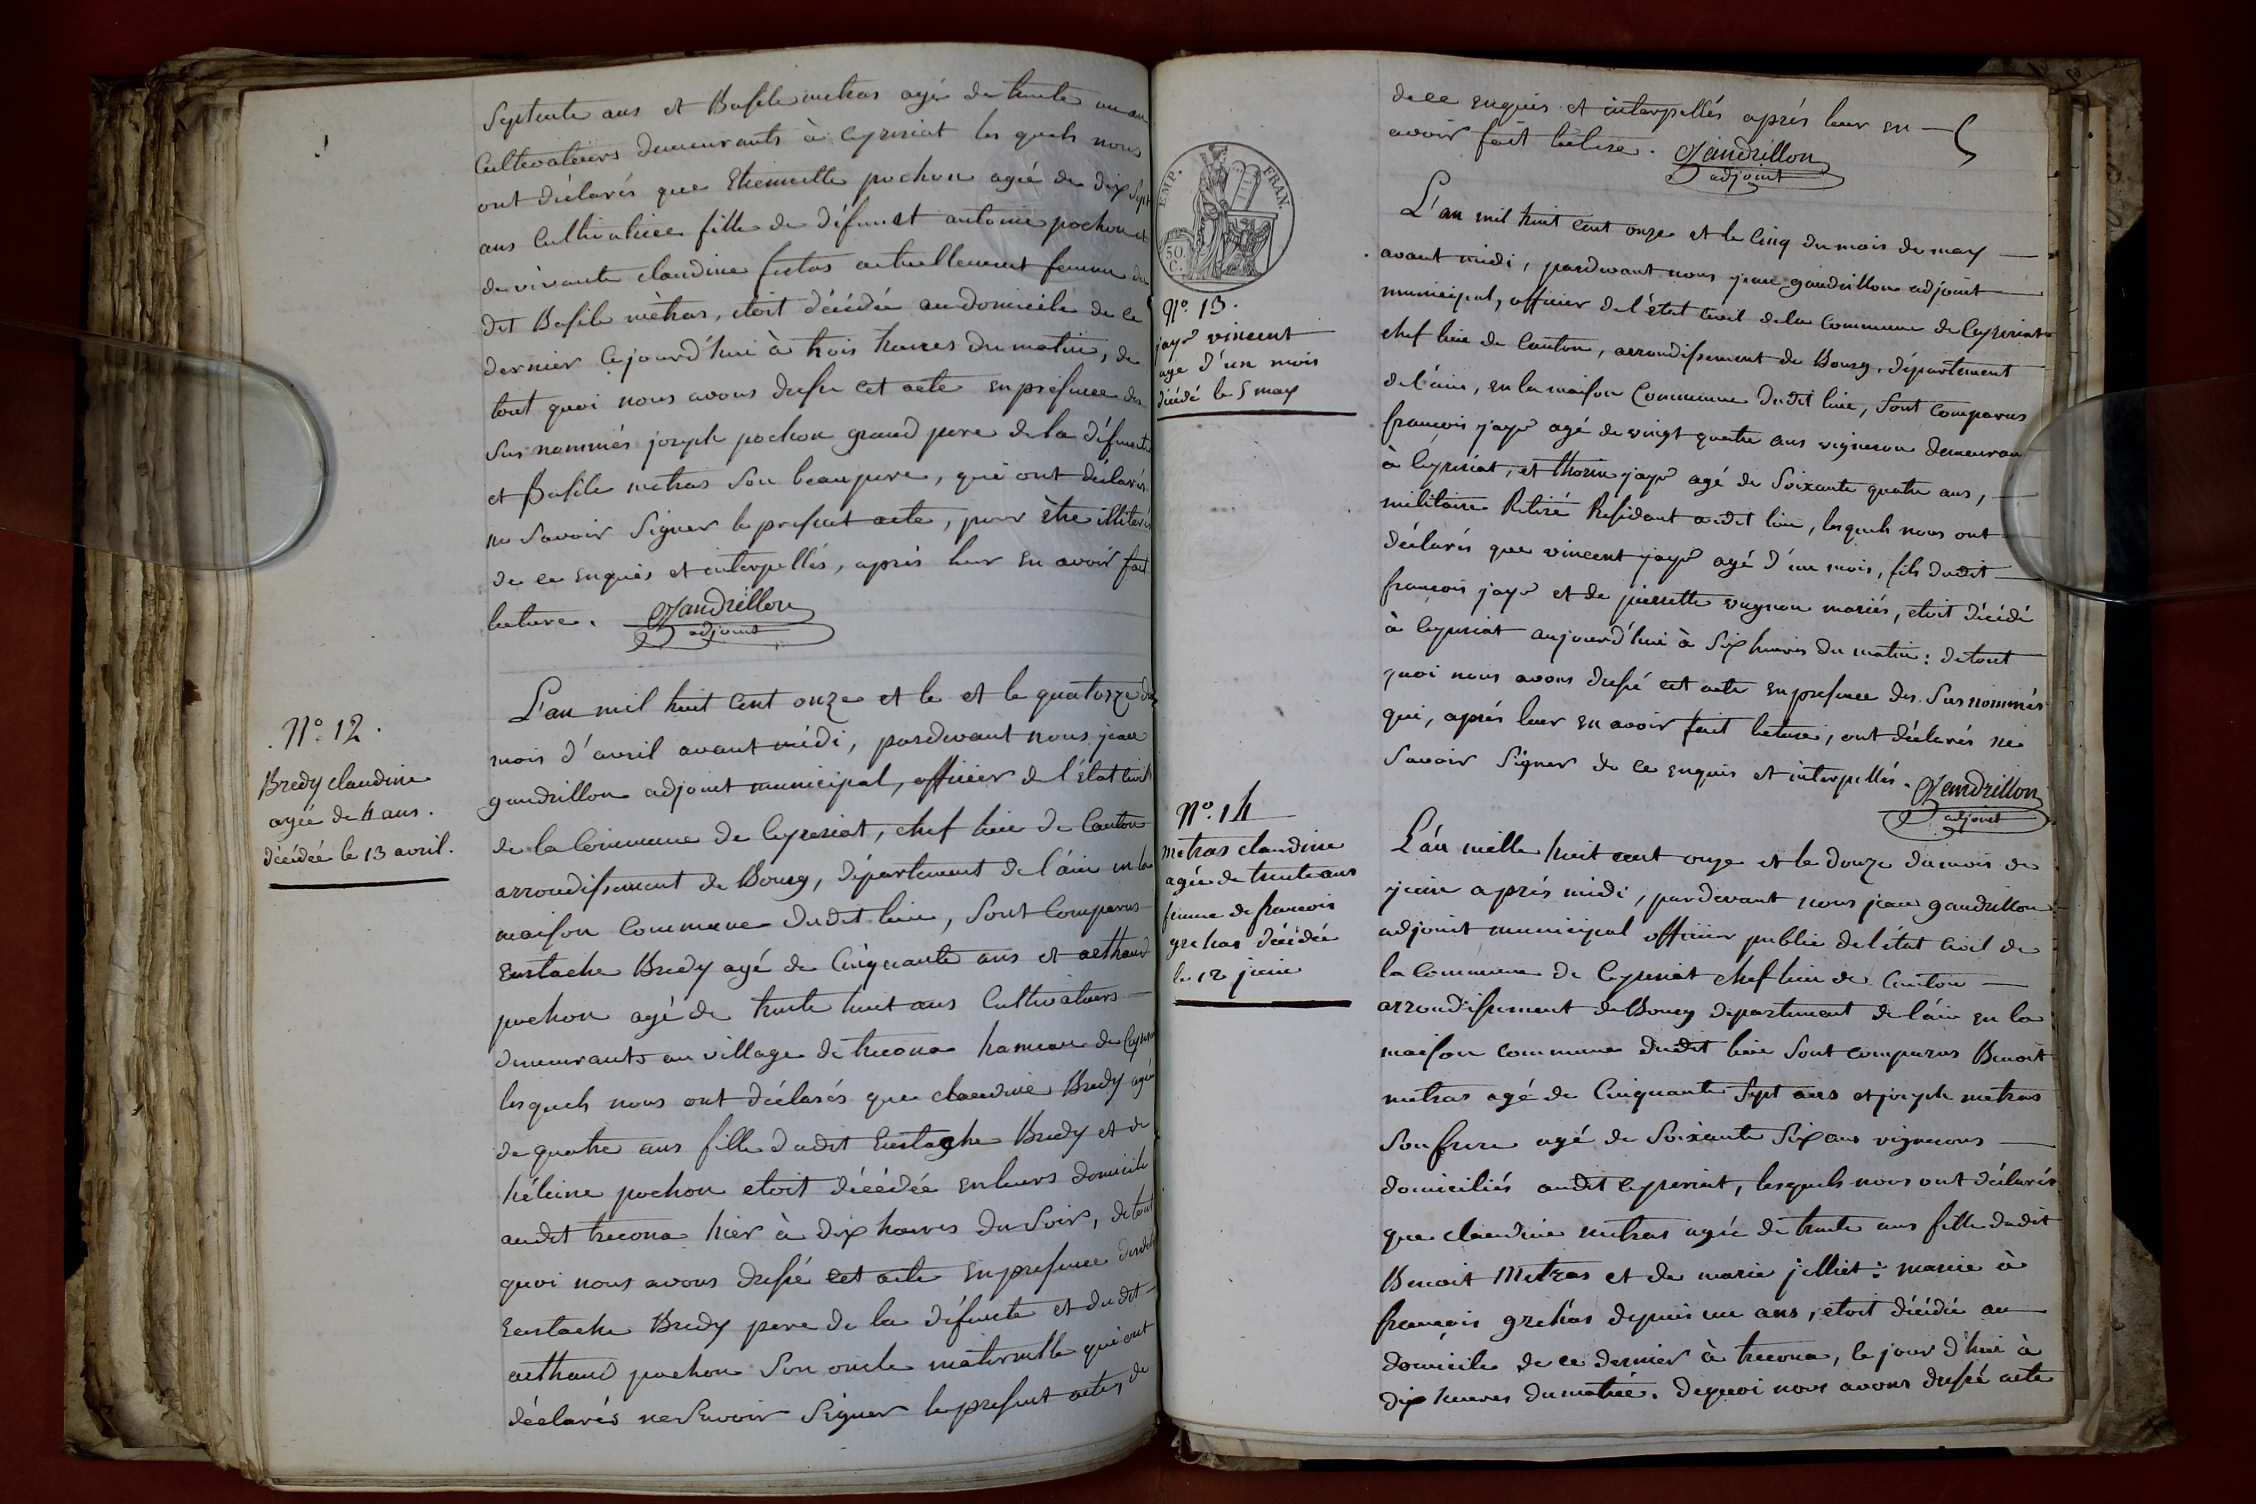 Septante ans et Basile metras agé de trente un ans
Cultivateurs demeurants à Ceyzeriat les quels nous
ont déclarés que Etiennette pochon agée de dix Sept
ans Cultivatrice fille de défunct antoine pochon et
de vivante claudine actuellement femme du
dit Basile mètras, étoit décédée au domicile de ce
dernier Cejourd'hui à trois heures du matin, de
tout quoi nous avons dressé cet acte en présence des
Sus nommés joseph pochon grand pere de la défuncte
et Basile metras Son beaupere, qui ont déclarés
ne Savoir Signer le present acte, pour être illiterés
de ce enquis et interpellés, après leur en avoir fait
lecture. Gandrillon
adjoint
N° 12.
Bredy claudine
agée de 4 ans.
décédée le 13 avril.
L'an mil huit cent onze et le et le quatorze du
mois d'avril avant midi, pardevant nous jean
gandrillon adjoint municipal, officier de l'état civil
de la Commune de Ceyzeriat, chef lieu de Canton
arrondissement de Bourg, département de l'ain en la
maison Commune dudit lieu, Sont Comparus
Eustache Bredy agé de Cinquante ans et arthaud
pochon agé de trente huit ans Cultivateurs
demeurants au village de trecona hameau de
lesquels nous ont déclarés que claudine Bredy agée
de quatre ans fille dudit Eustache Bredy et de
héleine pochon etoit décédée en leurs domicile
audit trecona hier à dix heures du Soir, de tout
quoi nous avons dressé cet acte En presence dudit
Eustache Bredy pere de la défuncte et dudit
arthaud pochon Son oncle maternelle qui ont
déclarés ne Savoir Signer le present acte, de
de ce enquis et interpellés après leur en
avoir fait lecture. Gandrillon
adjoint
EMP. FRAN.
50 C.
N° 13.
jayr vincent
agé d'un mois
décédé le 5 may
L'an mil huit cent onze et le cinq du mois de may
avant midi, pardevant nous jean gandrillon adjoint
municipal, officier de l'état civil de la Commune de Ceyzeriat
chef lieu de Canton, arrondissement de Bourg, département
de l'ain, en la maison Commune dudit lieu, Sont Comparus
françois jayr agé de vingt quatre ans vigneron demeurant
à Ceyzeriat, et jayr agé de Soixante quatre ans,
militaire Retiré Residant audit lieu, lesquels nous ont
déclarés que vincent jayr agé d'un mois, fils dudit
françois jayr et de pierrette vuynon mariés, etoit décédé
à Ceyzeriat aujourd'hui à Six heures du matin: de tout
quoi nous avons dressé cet acte en presence des Susnommés
qui, après leur en avoir fait lecture, ont déclarés ne
Savoir Signer de ce enquis et interpellés. Gandrillon
adjoint
N° 14
metras claudine
agée de trente ans
femme de françois
grehas décédée
le 12 juin
L'an mille huit cent onze et le douze du mois de
juin après midi, pardevant nous jean gandrillon
adjoint municipal officier public de l'état civil de
la Commune de Ceyzeriat chef lieu de Canton
arrondissement de Bourg departement de l'ain en la
maison commune dudit lieu Sont comparus Benoit
metras agé de Cinquante Sept ans et joseph metras
Son frere agé de Soixante Six ans vignerons
domiciliés audit Ceyzeriat, lesquels nous ont déclarés
que claudine metras agée de trente ans fille dudit
Benoit Metras et de marie jolliet: mariée à
françois grehas depuis un ans, etoit décédée au
domicile de ce dernier à trecona, le jour d'hui à
dix heures du matin. dequoi nous avons dressé acte